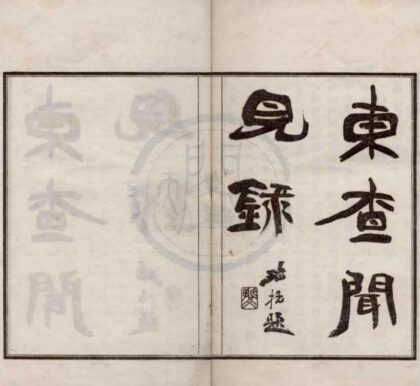 東查聞
見錄
題